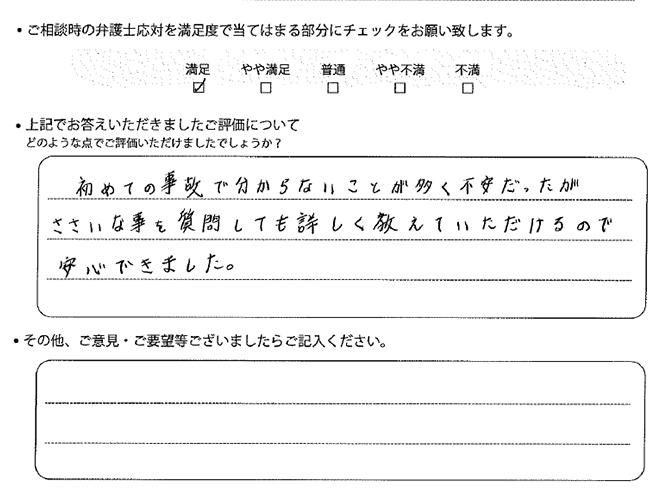 ・ご相談時の弁護士応対を満足度で当てはまる部分にチェックをお願い致します。
満足 やや満足 普通 やや不満 不満
☑ □ □ □ □
・上記でお答えいただきましたご評価について
どのような点でご評価いただけましたでしょうか？
初めての事故で分からないことが多く不安だったが
ささいな事を質問しても詳しく教えていただけるので
安心できました。
・その他、ご意見・ご要望等ございましたらご記入ください。